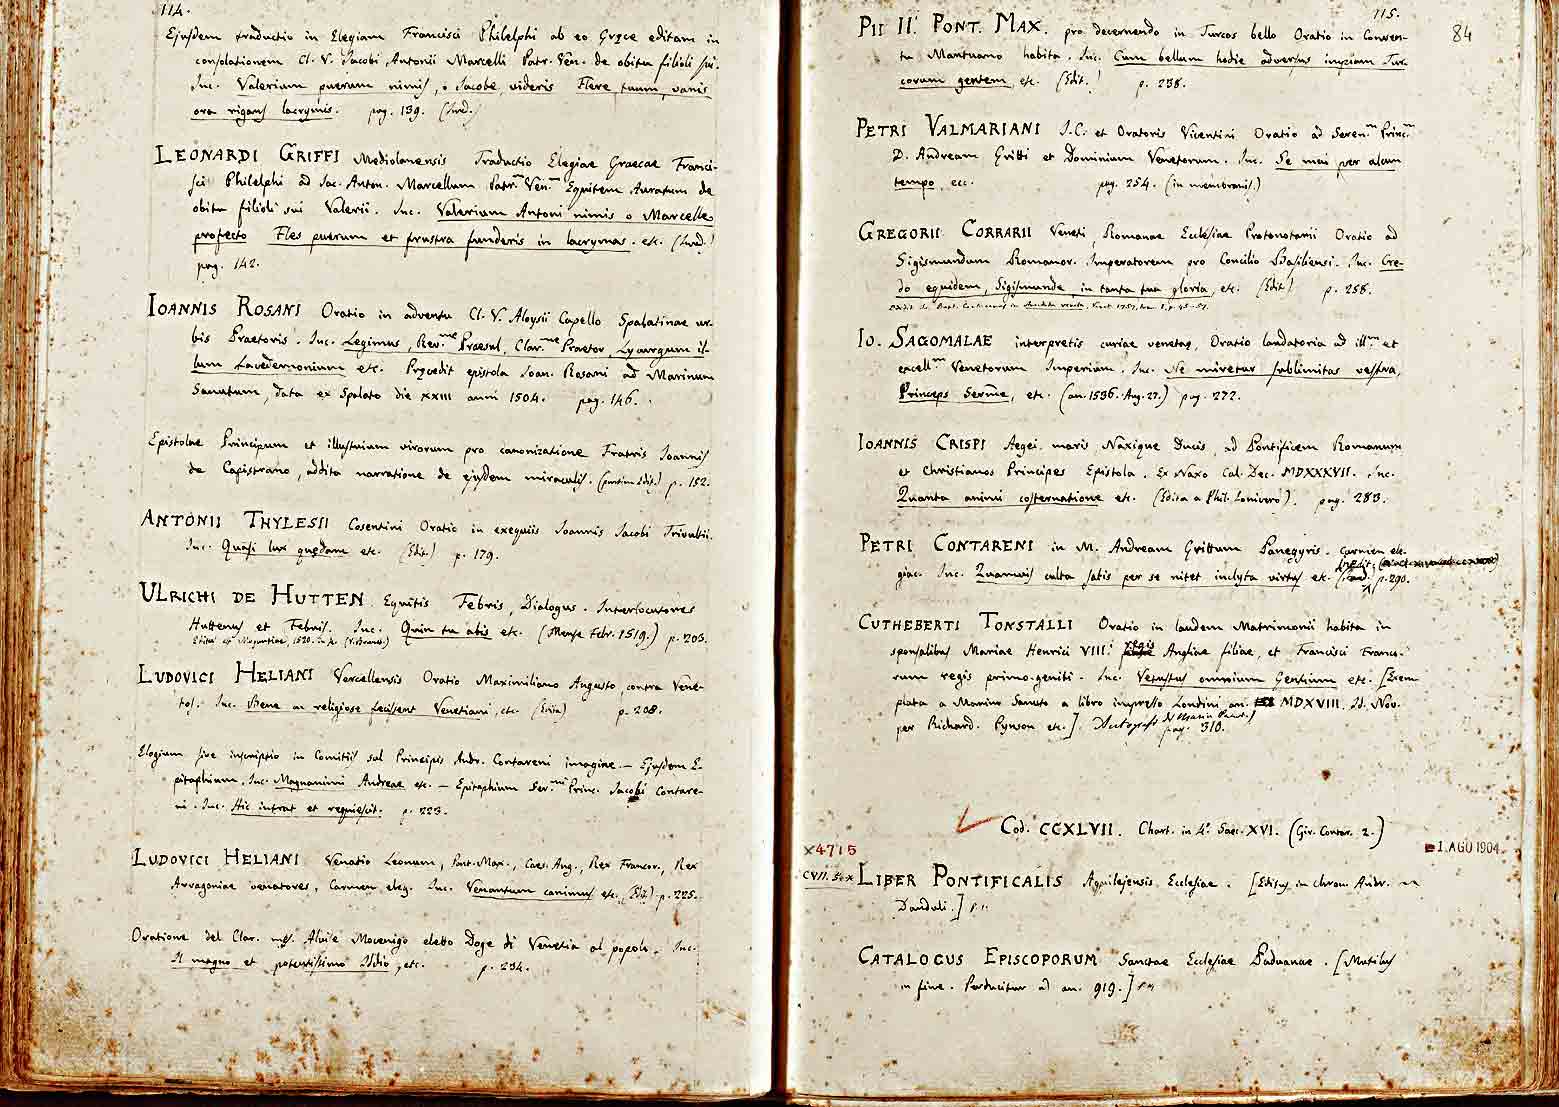 114.
Ejusdem traductio in Elegiam Francisci Philelphi ab eo Gręce editam in
consolationem Cl. V. Jacobi Antonii Marcelli Patr. Ven. de obitu filioli sui.
Inc. Valerium puerum nimis, o Jacobe, videris Flere tuum, vanis
ora rigans lacrymis. pag. 139. (Ined.)
LEONARDI GRIFFI Mediolanensis Traductio Elegiae Graecae Franci-
sci Philelphi ad Jac. Anton. Marcellum Patr.m Ven.m Equitem Auratum de
obitu filioli sui Valerii. Inc. Valerium Antoni nimis o Marcelle
profecto Fles puerum et frustra funderis in lacrymas. etc. (Ined.)
pag. 142.
IOANNIS ROSANI Oratio in adventu Cl. V. Aloysii Capello Spalatinae ur-
bis Praetoris. Inc. Legimus, Rev.me Praesul, Clar.me Praetor, Lycurgum il-
lum Lacedemonium etc. Pręcedit epistola Ioan. Rosani ad Marinum
Sanutum, data ex Spalato die XXIII anni 1504. pag. 146.
Epistolae Principum et illustrium virorum pro canonizatione Fratris Ioannis
de Capistrano, addita narratione de ejusdem miraculis. (partim Edit.) p. 152.
ANTONII THYLESII Cosentini Oratio in exequiis Ioannis Jacobi Trivultii.
Inc. Quasi lux quędam etc. (Edit.) p. 179.
ULRICHI DE HUTTEN Equitis Febris, Dialogus. Interlocutores
Huttenus et Febris. Inc. Quin tu abis etc. (Mense Febr. 1519.) p. 203.
LUDOVICI HELIANI Vercellensis Oratio Maximiliano Augusto contra Vene-
tos. Inc. Bene ac religiose fecissent Venetiani, etc. p. 208.
Elogium sive inscriptio in Comitiis sub Principis Andr. Contareni imagine. — Ejusdem E-
pitaphium. Inc. Magnanimi Andreae etc. — Epitaphium Ser.mi Princ. Jacobi Contare-
ni. Inc. Hic intrat et requiescit. p. 223.
LUDOVICI HELIANI Venatio Leonum, Pont. Max., Caes. Aug., Rex Francor., Rex
Arragoniae venatores, Carmen eleg. Inc. Venantum canimus etc. (Edit.) p. 225.
Oratione del Clar. mes. Alvise Mocenigo eletto Doge di Venetia al popolo. Inc.
Il magno et potentissimo Iddio, etc. p. 234.
115.
84
PII II. PONT. MAX. pro decernendo in Turcos bello Oratio in Conven-
tu Mantuano habita. Inc. Cum bellum hodie adversus impiam Tur-
corum gentem, etc. (Edit.) p. 238.
PETRI VALMARIANI J.C. et Oratoris Vicentini Oratio ad Seren.m Princ.m
D. Andream Gritti et Dominium Venetorum. Inc. Se mai per alcun
tempo, ecc. pag. 254. (in membranis.)
GREGORII CORRARII Veneti, Romanae Ecclesiae Protonotarii Oratio ad
Sigismundum Romanor. Imperatorem pro Concilio Basiliensi. Inc. Cre-
do equidem, Sigismunde, in tanta tua gloria, etc. (Edit.) p. 258.
IO. SAGOMALAE interpretis curiae venetae, Oratio laudatoria ad ill.m et
excell.m Venetorum Imperium. Inc. Ne miretur sublimitas vestra,
Princeps Serme, etc. (an. 1536. Aug. 27.) pag. 272.
IOANNIS CRISPI Aegei maris Naxique Ducis, ad Pontificem Romanum
et Christianos Principes Epistola. Ex Naxo Cal. Dec. MDXXXVII. Inc.
Quanta animi costernatione etc. (Edita a Phil. Lonicero). pag. 283.
PETRI CONTARENI in M. Andream Grittum Panegyris. Carmen ele-
giac. Inc. Quamvis culta satis per se nitet inclyta virtus etc. (Inedit. p. 290.
CUTHEBERTI TONSTALLI Oratio in laudem Matrimonii habita in
sponsalibus Mariae Henrici VIII. regis Angliae filiae, et Francisci Franco-
rum regis primo-geniti. Inc. Vetustus omnium Gentium etc. [Exem
plata a Marino Sanuto a libro impresso Londini an. MDXVIII. Id. Nov.
per Richard. Pynson etc.] Autografo di Marin Sanut.)
pag. 310.
Cod. CCXLVII. Chart. in 4° Saec. XVI. (Gir. Contar. 2.)
x4715
1. AGO 1904
LIBER PONTIFICALIS Aquilejensis Ecclesiae. [Editus in chron. Andr.
Danduli.]
CATALOGUS EPISCOPORUM Sanctae Ecclesiae Paduanae. [Mutilus
in fine. Perducitur ad an. 919.]